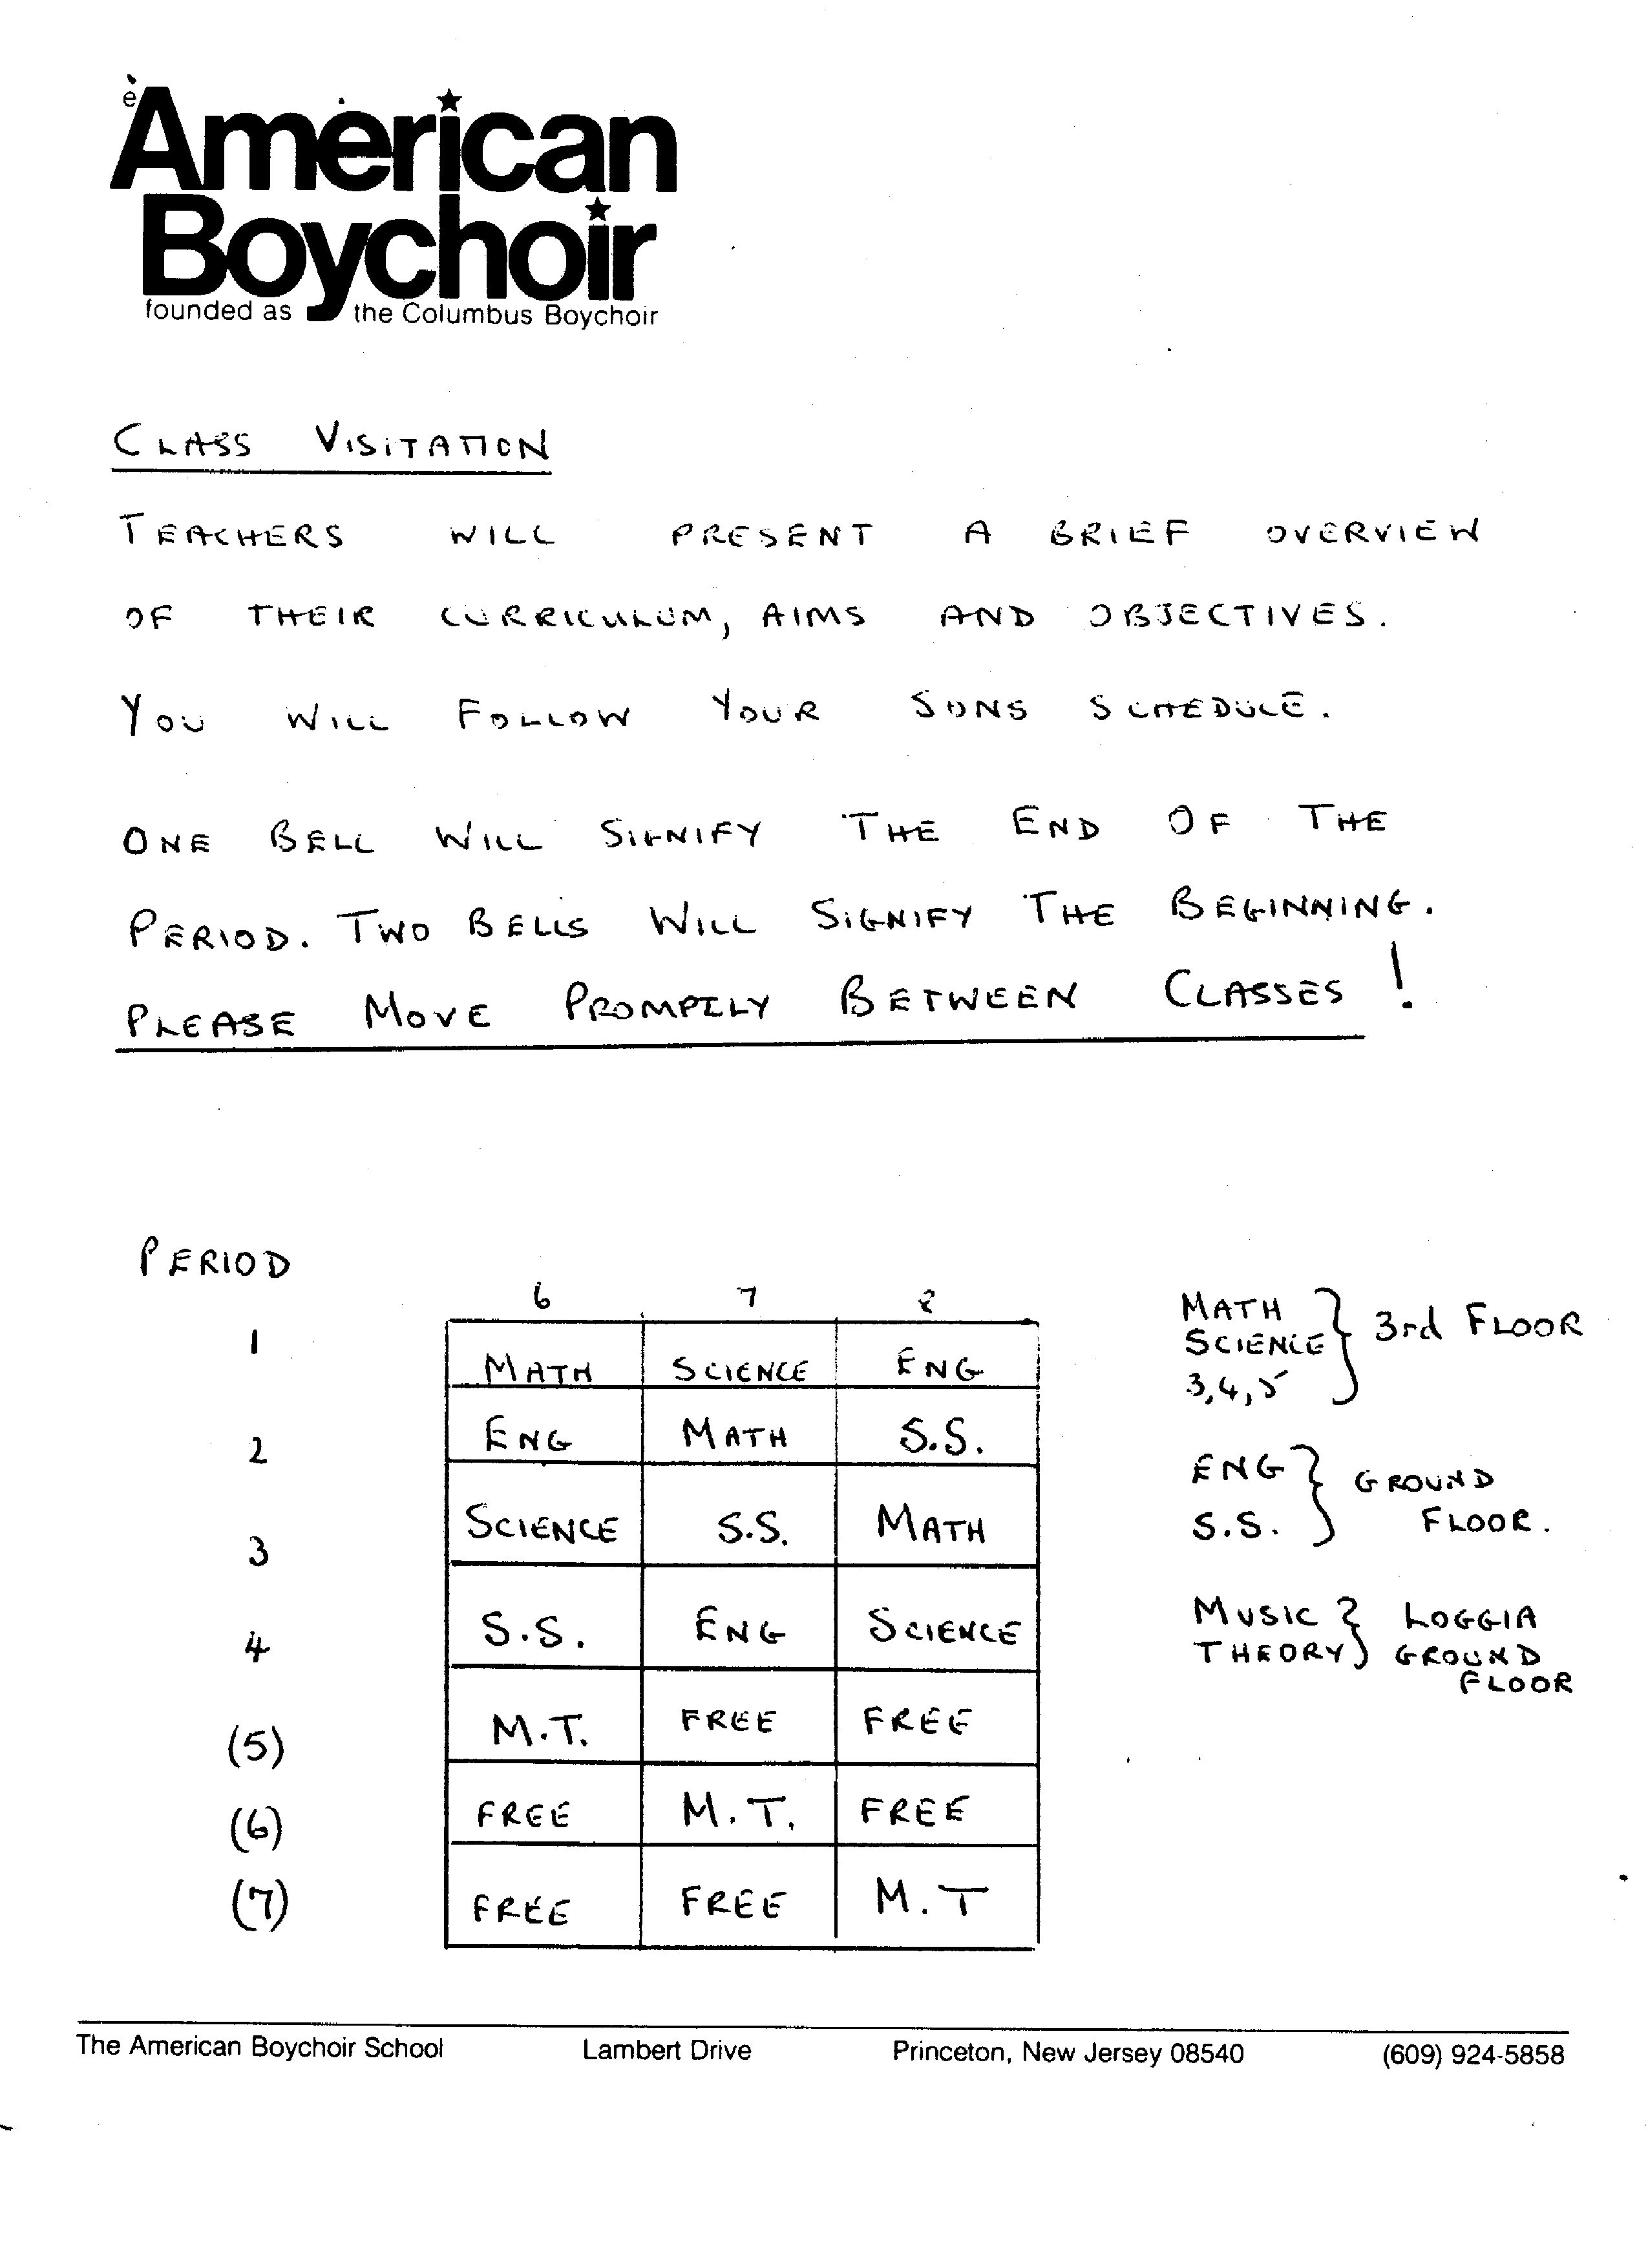 e
American
Boychoir
founded as the Columbus Boychoir
CLASS VISITATION
TEACHERS WILL PRESENT A BRIEF OVERVIEW
OF THEIR CURRICULUM, AIMS AND OBJECTIVES.
YOU WILL FOLLOW YOUR SONS SCHEDULE.
ONE BELL WILL SIGNIFY THE END OF THE
PERIOD. TWO BELLS WILL SIGNIFY THE BEGINNING.
PLEASE MOVE PROMPTLY BETWEEN CLASSES!
PERIOD
6 7 8
1 MATH SCIENCE ENG
2 ENG MATH S.S.
3 SCIENCE S.S. MATH
4 S.S. ENG SCIENCE
(5) M.T. FREE FREE
(6) FREE M.T. FREE
(7) FREE FREE M.T
MATH
SCIENCE } 3rd FLOOR
3,4,5
ENG } GROUND
S.S. FLOOR.
MUSIC } LOGGIA
THEORY GROUND
FLOOR
The American Boychoir School Lambert Drive Princeton, New Jersey 08540 (609) 924-5858